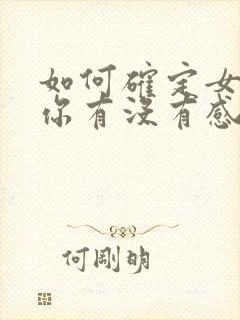 如何確定女
你有沒有感
何剛明